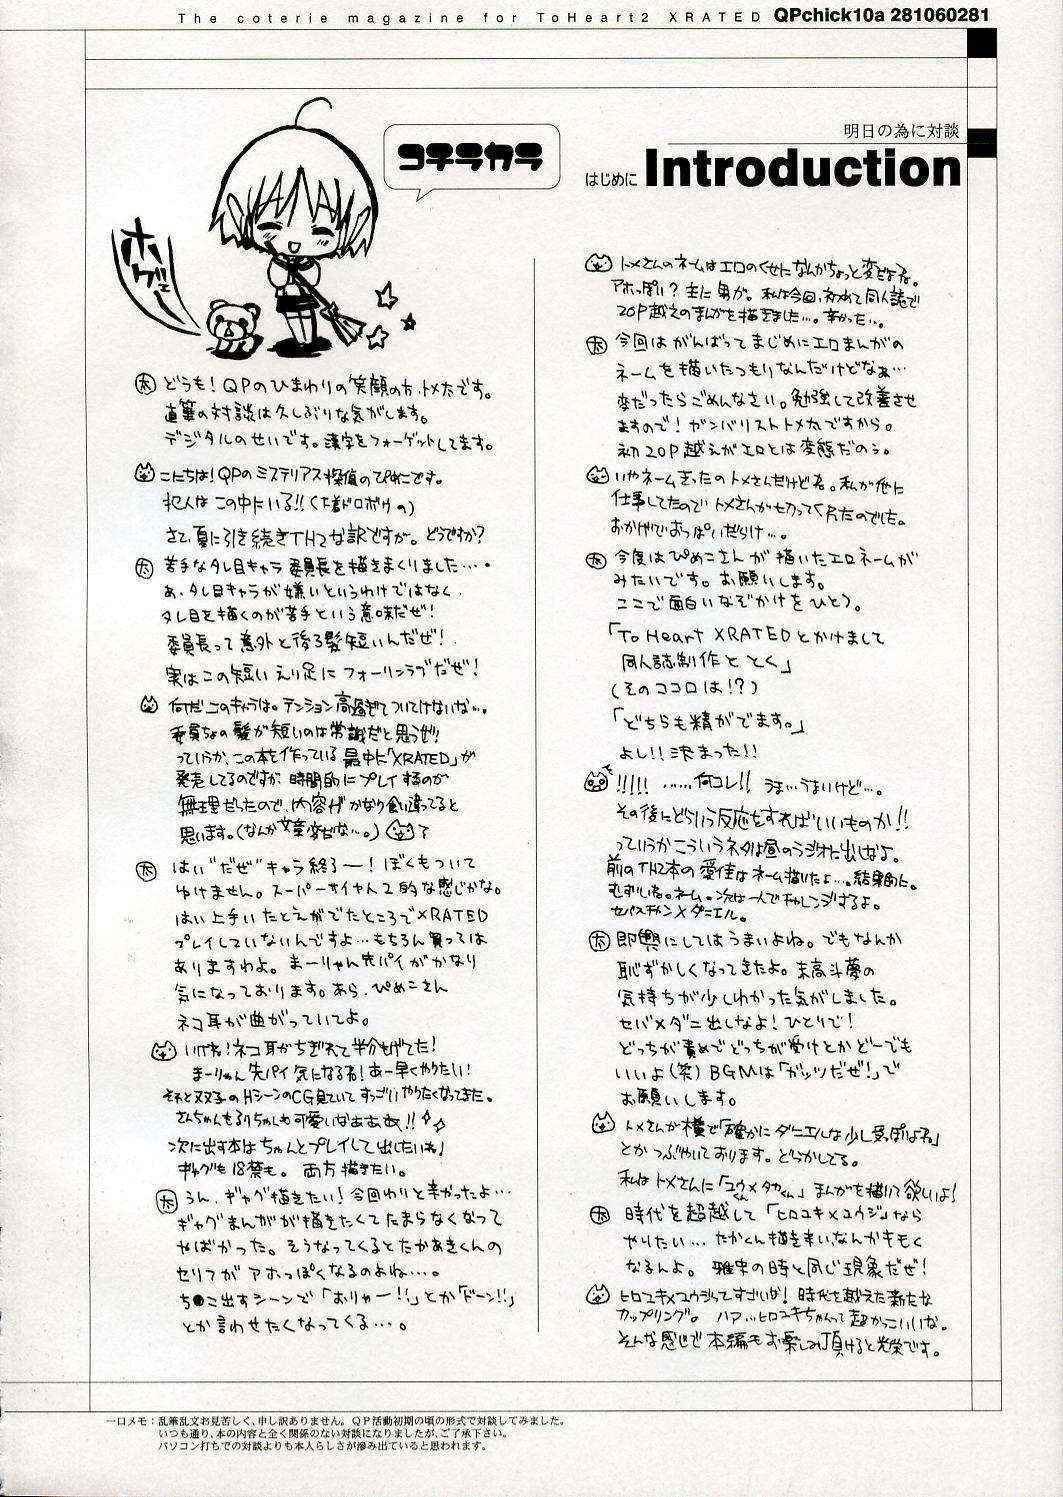 The coterie magazine for ToHeart2 XRATED QPchick10a 281060281
明日の為に対談
はじめに Introduction
コチラカラ
ホゲェー
太 どうも!QPのひまわりの笑顔の方、トメ太です。
直筆の対談は久しぶりな気がします。
デジタルのせいです。漢字をフォーゲットしてます。
こにちは!QPのミステリアス探偵のぴめこです。
犯人はこの中にいる!!(下着ドロボウの)
さて、夏に引き続きTH2な訳ですが。どうですか?
太 苦手なタレ目キャラ委員長を描きまくりました…・
あ、タレ目キャラが嫌いというわけではなく、
タレ目を描くのが苦手という意味だぜ!
委員長って意外と後ろ髪短いんだぜ!
実はこの短いえり足にフォーリンラブだぜ!
何だこのキャラは。テンション高過ぎてついてけないな…。
委員ちょの髪が短いのは常識だと思うぜ!!
っていうか、この本を作っている最中に「XRATED」が
発売してるのですが、時間的にプレイするのが
無理だったので、内容がかなり食い違ってると
思います。(なんか文章変だな…。)
太 はい“だぜ”キャラ終了ー!ぼくもついて
ゆけません。スーパーサイヤ人2的な感じかな。
はい上手いたとえがでたところでXRATED
プレイしていないんですよ…もちろん買っては
ありますわよ。まーりゃん先パイがかなり
気になっております。あら、ぴめこさん
ネコ耳が曲がっていてよ。
いけね!ネコ耳がちぎれて半分もげてた!
まーりゃん先パイ気になるね!あー早くやりたい!
それと双子のHシーンのCG見ていてすっごいやりたくなってきた。
さんちゃんもるりちゃんも可愛いなぁあぁぁ!!
次に出す本はちゃんとプレイして出したいね!
ギャグも18禁も。両方描きたい。
太 うん、ギャグ描きたい!今回わりと辛かったよ…
ギャグまんがが描きたくてたまらなくなって
やばかった。そうなってくるとたかあきくんの
セリフがアホっぽくなるのよね…。
ち●こ出すシーンで「おりゃー!!」とか「ドーン!!」
とか言わせたくなってくる…。
トメさんのネームはエロのくせになんかちょっと変だよね。
アホっぽい?主に男が。私は今回、初めて同人誌で
20P越えのまんがを描きました…。辛かった…。
太 今回はがんばってまじめにエロまんがの
ネームを描いたつもりなんだけどなぁ…
変だったらごめんなさい。勉強して改善させ
ますので!ガンバリストトメ太ですから。
初20P越えがエロとは変態だのぅ。
いやネームきったのトメさんだけどね。私が他に
仕事してたのでトメさんが切ってくれたのでした。
おかげでおっぱいだらけ…。
太 今度はぴめこさんが描いたエロネームが
みたいです。お願いします。
ここで面白いなぞかけをひとつ。
「To Heart XRATEDとかけまして
同人誌制作ととく」
(そのココロは!?)
「どちらも精がでます。」
よし!!決まった!!
!!!!! ……何コレ!! うま…うまいけど…。
その後にどういう反応をすればいいものか!!
っていうかこういうネタは昼のラジオに出しなよ。
前のTH2本の愛佳はネーム描いたよ…。結果的に。
むずいね。ネーム。次は一人でチャレンジするよ。
セバスチャン×ダニエル。
太 即興にしてはうまいよね。でもなんか
恥ずかしくなってきたよ。末高斗夢の
気持ちが少しわかった気がしました。
セバ×ダニ出しなよ!ひとりで!
どっちが責めでどっちが受けとかどーでも
いいよ(笑)BGMは「ガッツだぜ!」で
お願いします。
トメさんが横で「確かにダニエルは少し受っぽいよね」
とかつぶやいております。どうかしてる。
私はトメさんに「ユウくん×タカくん」まんがを描いて欲しいよ!
太 時代を超越して「ヒロユキ×ユウジ」なら
やりたい…たかくん描き辛い、なんかキモく
なるんよ。雅史の時と同じ現象だぜ!
ヒロユキ×ユウジってすごいな!時代を越えた新たな
カップリング。ハァ…ヒロユキちゃんって超かっこいいな。
そんな感じで本編もお楽しみ頂けると光栄です。
一口メモ:乱筆乱文お見苦しく、申し訳ありません。QP活動初期の頃の形式で対談してみました。
いつも通り、本の内容と全く関係のない対談になりましたが、ご了承下さい。
パソコン打ちでの対談よりも本人らしさが滲み出ていると思われます。